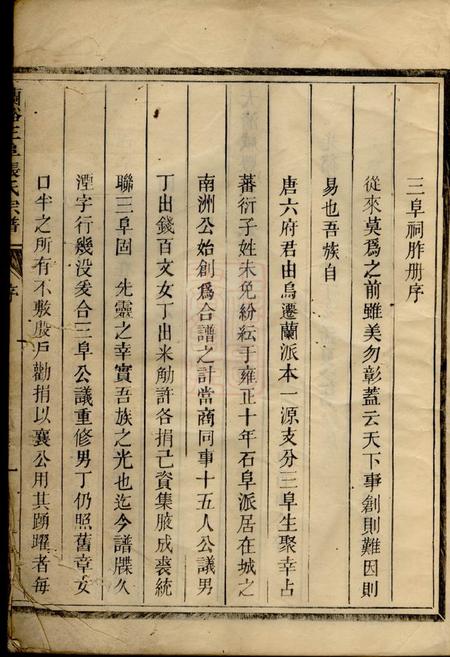 三阜祠胙册序
從來莫為之前雖美勿彰蓋云天下事創則難因則
易也吾族自
唐六府君由烏遷蘭派本一源支分三阜生聚幸占
蕃衍子姓未免紛紜于雍正十年石阜派居在城之
南洲公始創為合譜之計當商同事十五人公議男
丁出錢百文女丁出米觔許各捐己資集腋成裘統
聯三阜固 先靈之幸實吾族之光也迄今譜牒久
湮字行幾没爰合三阜公議重修男丁仍照舊章女
口半之所有不敷殷戶勸捐以襄公用其踴躍者每
蘭谿三阜張氏宗譜
序
一